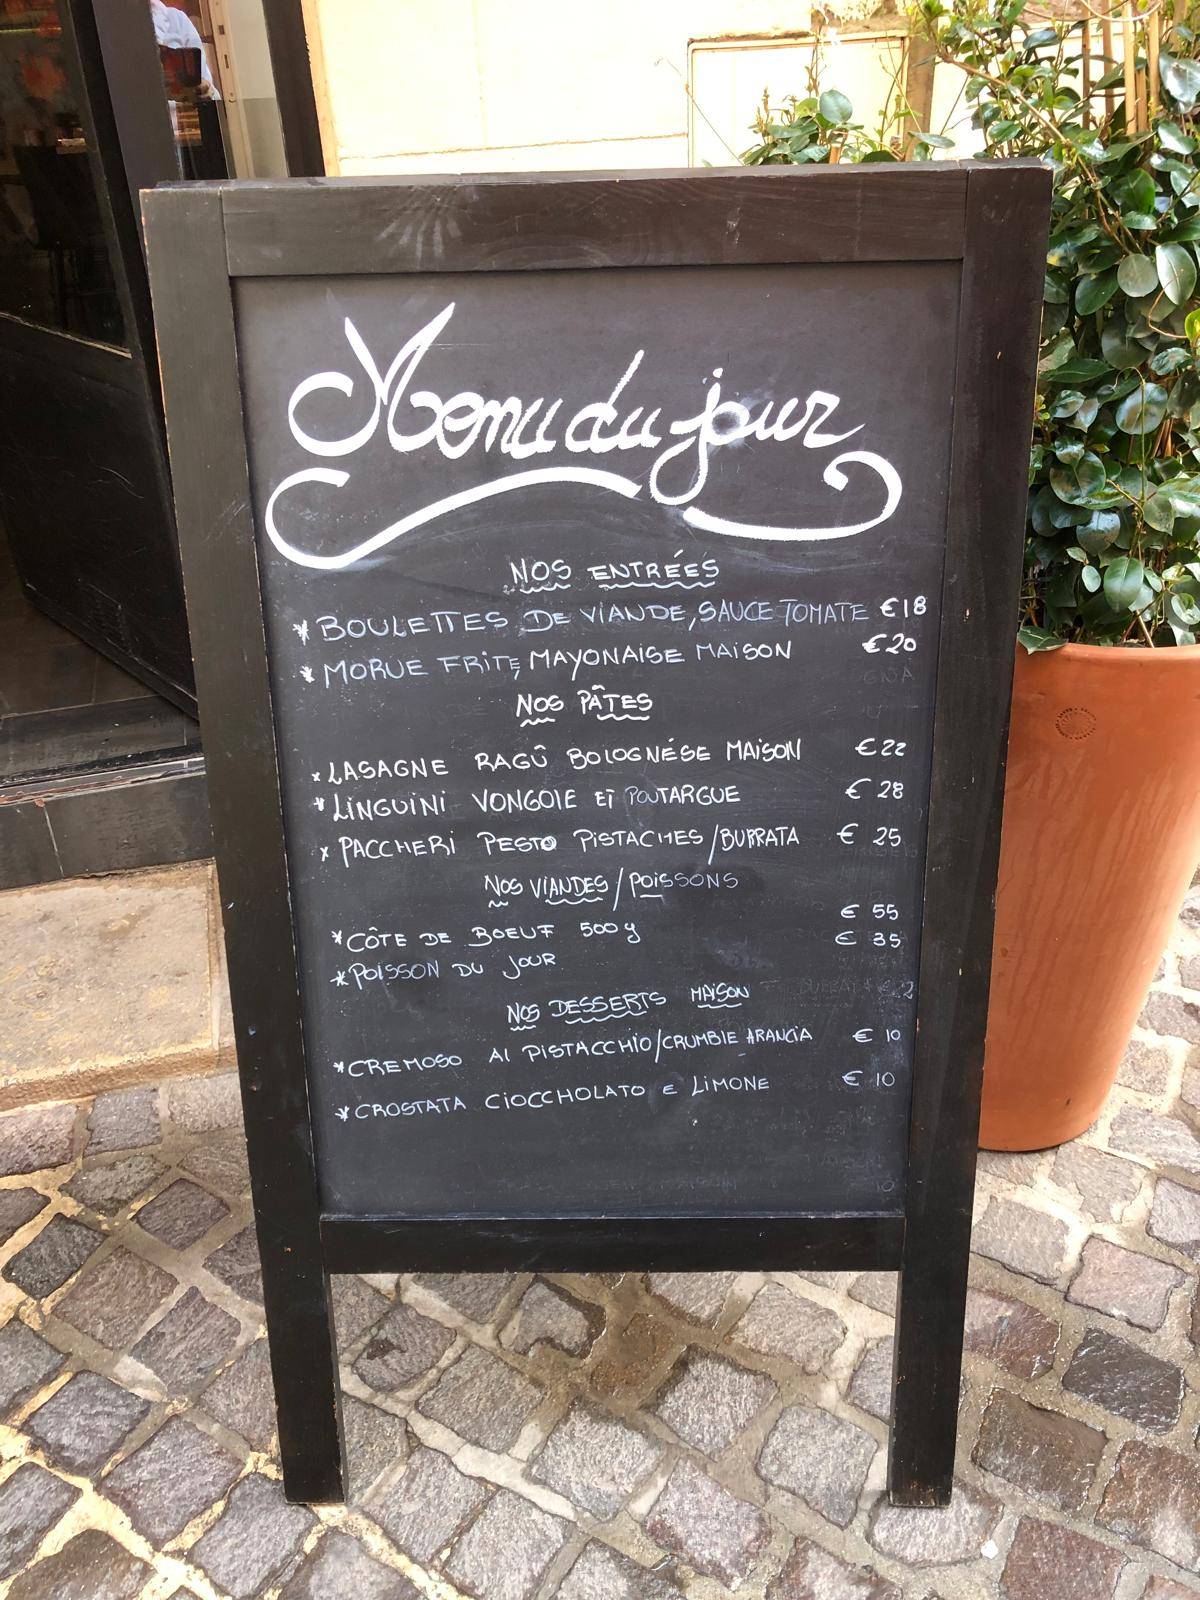 Menu du jour
NOS ENTRÉES
* BOULETTES DE VIANDE, SAUCE TOMATE €18
* MORUE FRITE, MAYONAISE MAISON €20
NOS PÂTES
* LASAGNE RAGÛ BOLOGNÉSE MAISON €22
* LINGUINI VONGOLE ET POUTARGUE € 28
* PACCHERI PESTO PISTACHES/BURRATA € 25
NOS VIANDES/POISSONS
* CÔTE DE BOEUF 500g € 55
* POISSON DU JOUR € 35
NOS DESSERTS MAISON
* CREMOSO AI PISTACCHIO/CRUMBLE ARANCIA € 10
* CROSTATA CIOCCHOLATO E LIMONE € 10